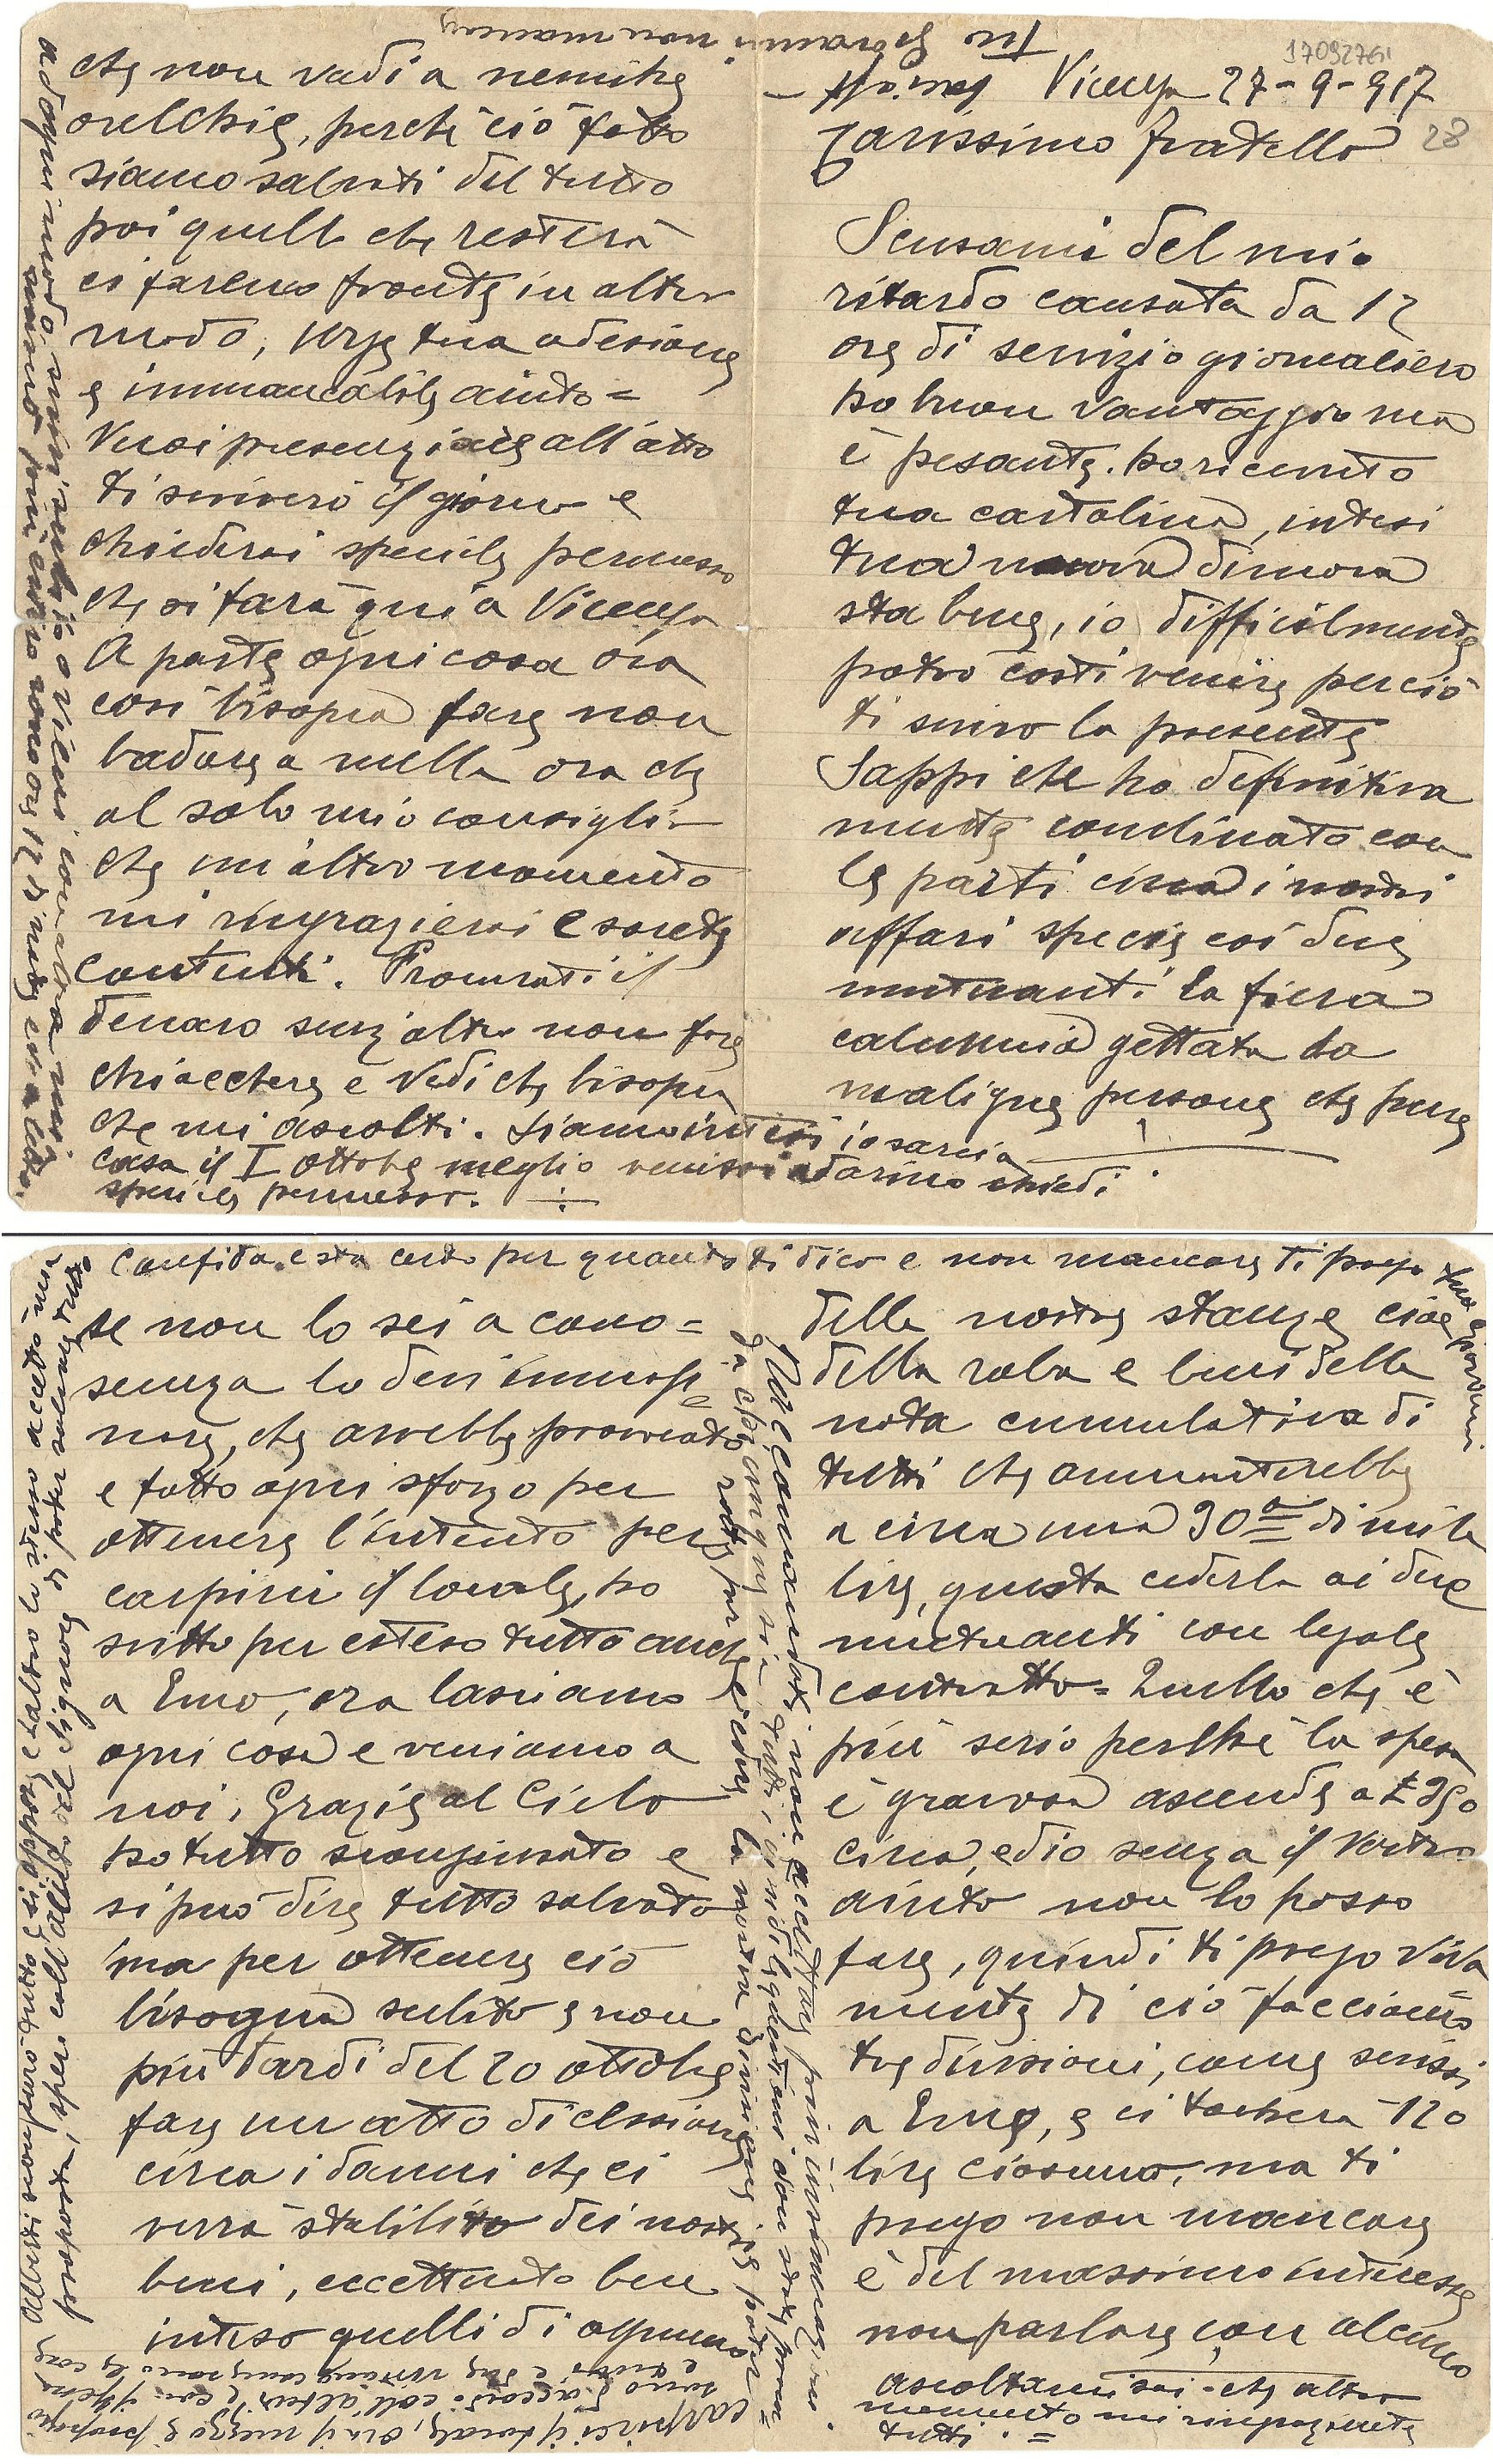 17092761
28
Vicenza 27-9-917
Carissimo fratello
Scusami del mio
ritardo causata da 12
ore di servizio giornaliero
ho buon vantaggio ma
è pesante. ho ricevuto
tua cartolina, intesi
tua nuova dimora
sta bene, io difficilmente
potro costi venire perciò
ti scrivo la presente
Sappi che ho definitiva
mente conclinato con
le parti circa i nostri
affari specie coi due
mutuanti la fiera
calunnia gettata da
maligne persone che pure
se non lo sei a cono=
scenza lo devi immagi
nare, che avrebbe provocato
e fatto ogni sforzo per
ottenere l'intento per
carpirci il locale, ho
scritto per esteso tutto anche
a Emo, ora lasciamo
ogni cosa e veniamo a
noi, Grazie al Cielo
ho tutto scongiurato e
si può dire tutto salvato
ma per ottenere ciò
bisogna subito e non
più tardi del 20 ottobre
fare un atto di cessione
circa i danni che ci
verrà stabilito dei nostri
beni, eccettuato ben
inteso quelli di ognuno
delle nostre stanze cioè
della roba e beni della
nota cumulativa di
tutti che ammonterebbe
a circa una 30a di mila
lire, questa cederla ai due
mutuanti con legale
contratto = Quello che è
più serio perchè la spesa
è gravosa ascende a £ 350
circa, ed io senza il vostro
aiuto non lo posso
fare, quindi ti prego viva
mente di ciò facciamo
tre divisioni, come scrissi
a Emo, e ci toccherà 120
lire ciascuno, ma ti
prego non mancare
è del massimo interesse
non parlare con alcuno
ascoltami sai. che altro
momento mi ringrazierete
tutti. =
che non vadi a nemiche
orecchie, perchè ciò fatto
siamo salvati del tutto
poi quello che resterà
ci faremo fronte in altro
modo, urge tua adesione
e immancabile aiuto =
Vuoi presenziare all'atto
ti scriverò il giorno e
chiederai speciale permesso
che si farà qui a Vicenza
A parte ogni cosa ora
così bisogna fare non
badare a nulla ora che
al solo mio consiglio
che un altro momento
mi ringrazierai e sarete
contenti. Procurati il
denaro senz'altro non fare
chiacchere e vedi che bisogna
che mi ascolti. Siamo intesi io sarei a
casa il I ottobre meglio venissi ad Arsino chiedi
speciale permesso.
ad ogni modo, scrivi subito o vieni con altra mia
Confida e sta certo per quanto ti dico e non mancare ti prego tuo Giovanni
Raccomandoti non accettare poi insinuazioni
da chiunque sia tutti i
la nostra divisione per poter
carpirci il locale, ora il mezzo è propizio
sono d'accordo coll'altro e con
Tuo Giovanni non mancare